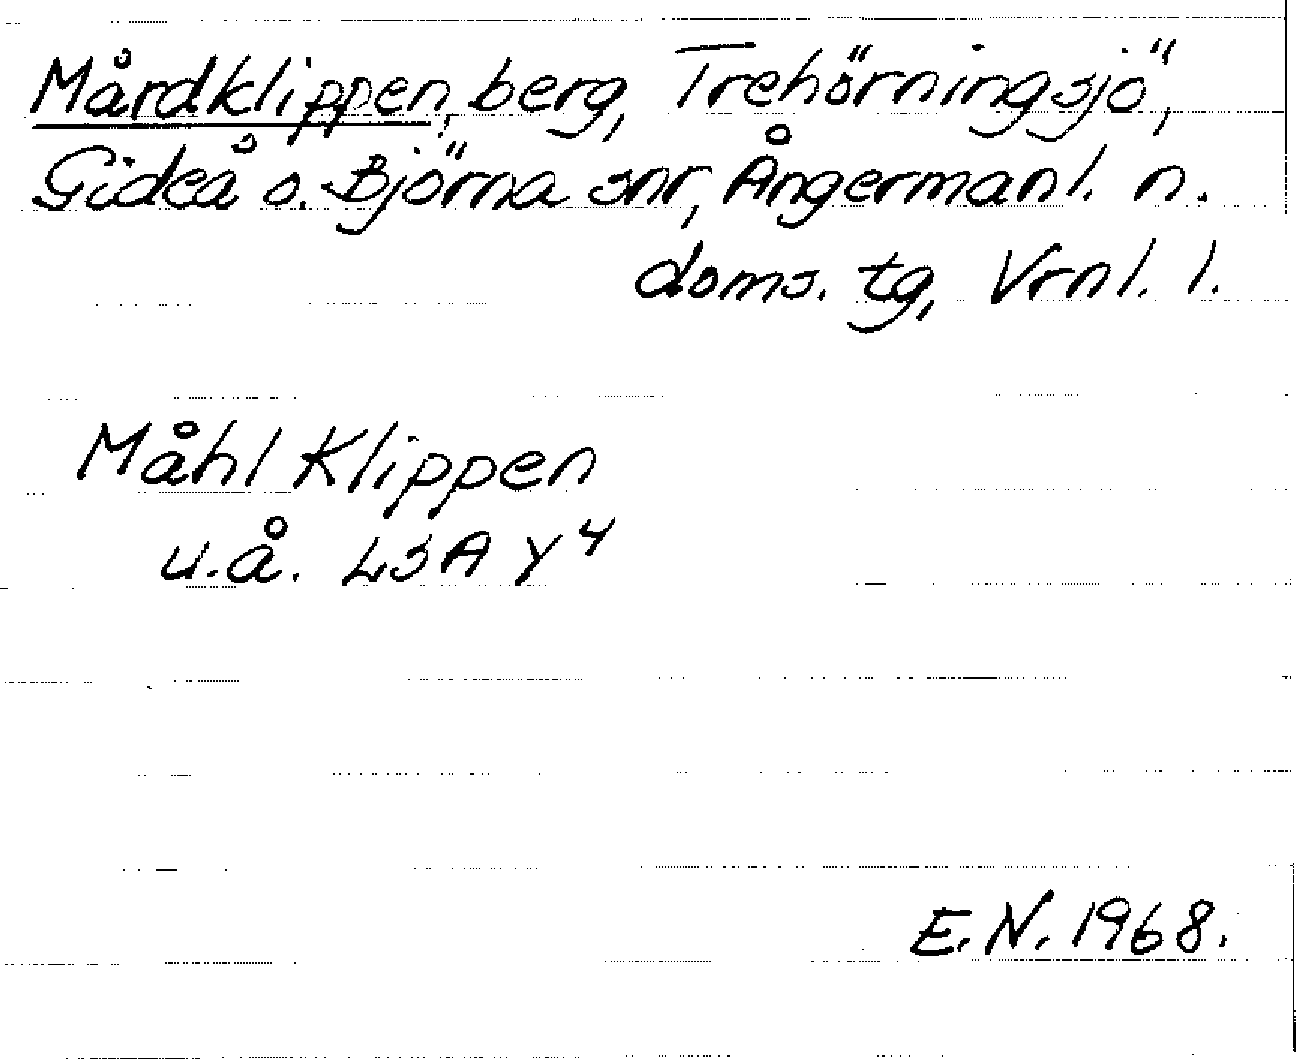 Mårdklippen, berg, Trehörningsjö,
Gideå o. Björna snr, Ångermanl. n.
doms. tg, Vrnl. l.
Måhl Klippen
u.å. LSA Y4
E.N. 1968.